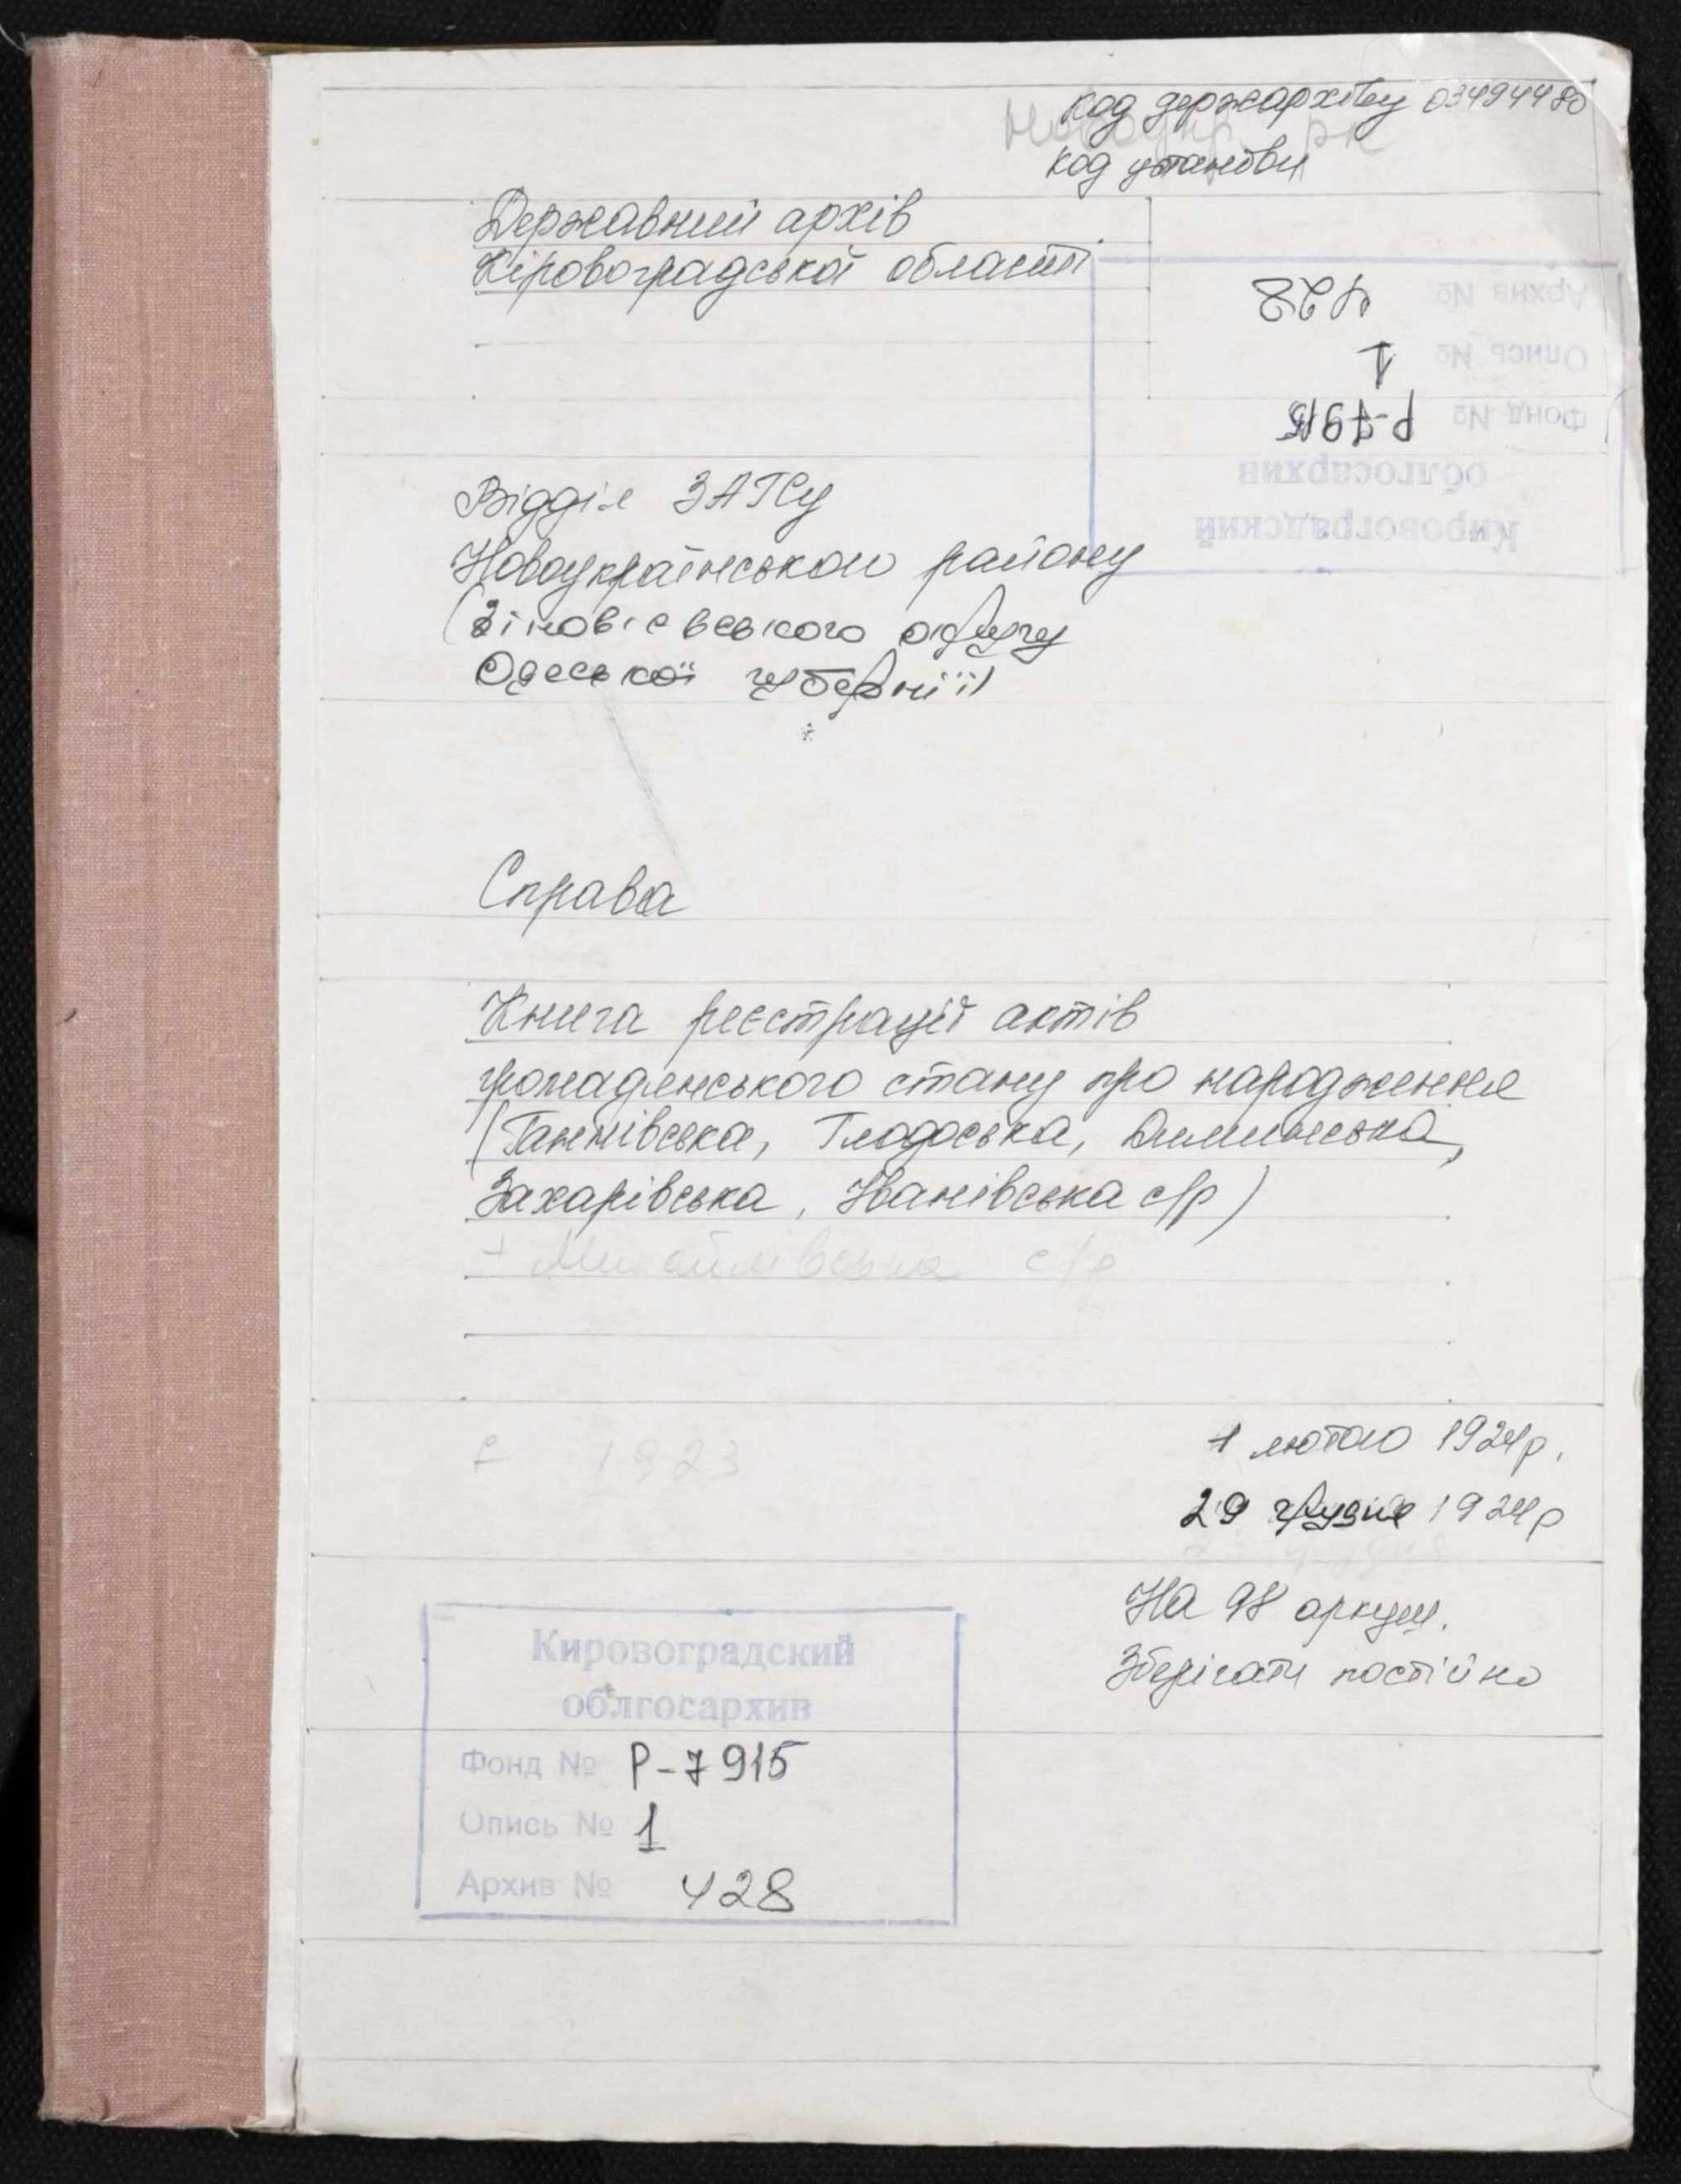 код держархіву 03494480
Новоукр. рн
код установи
Державний архів
Кіровоградської області
Кировоградский
облгосархив
Фонд № Р-7915
Опись № 1
Архив № 428
Відділ ЗАГСу
Новоукраїнського району
(Зінов'євського округу
Одеської губернії)
Справа
Книга реєстрації актів
громадянського стану про народження
(Ганнівська, Глодоська,
Захарівська, Іванівська с/р)
+ Михайлівська с/р
є 1923
1 лютого 1924р.
29 грудня 1924р
На 98 аркуш.
Зберігати постійно
Кировоградский
облгосархив
Фонд № Р-7915
Опись № 1
Архив № 428